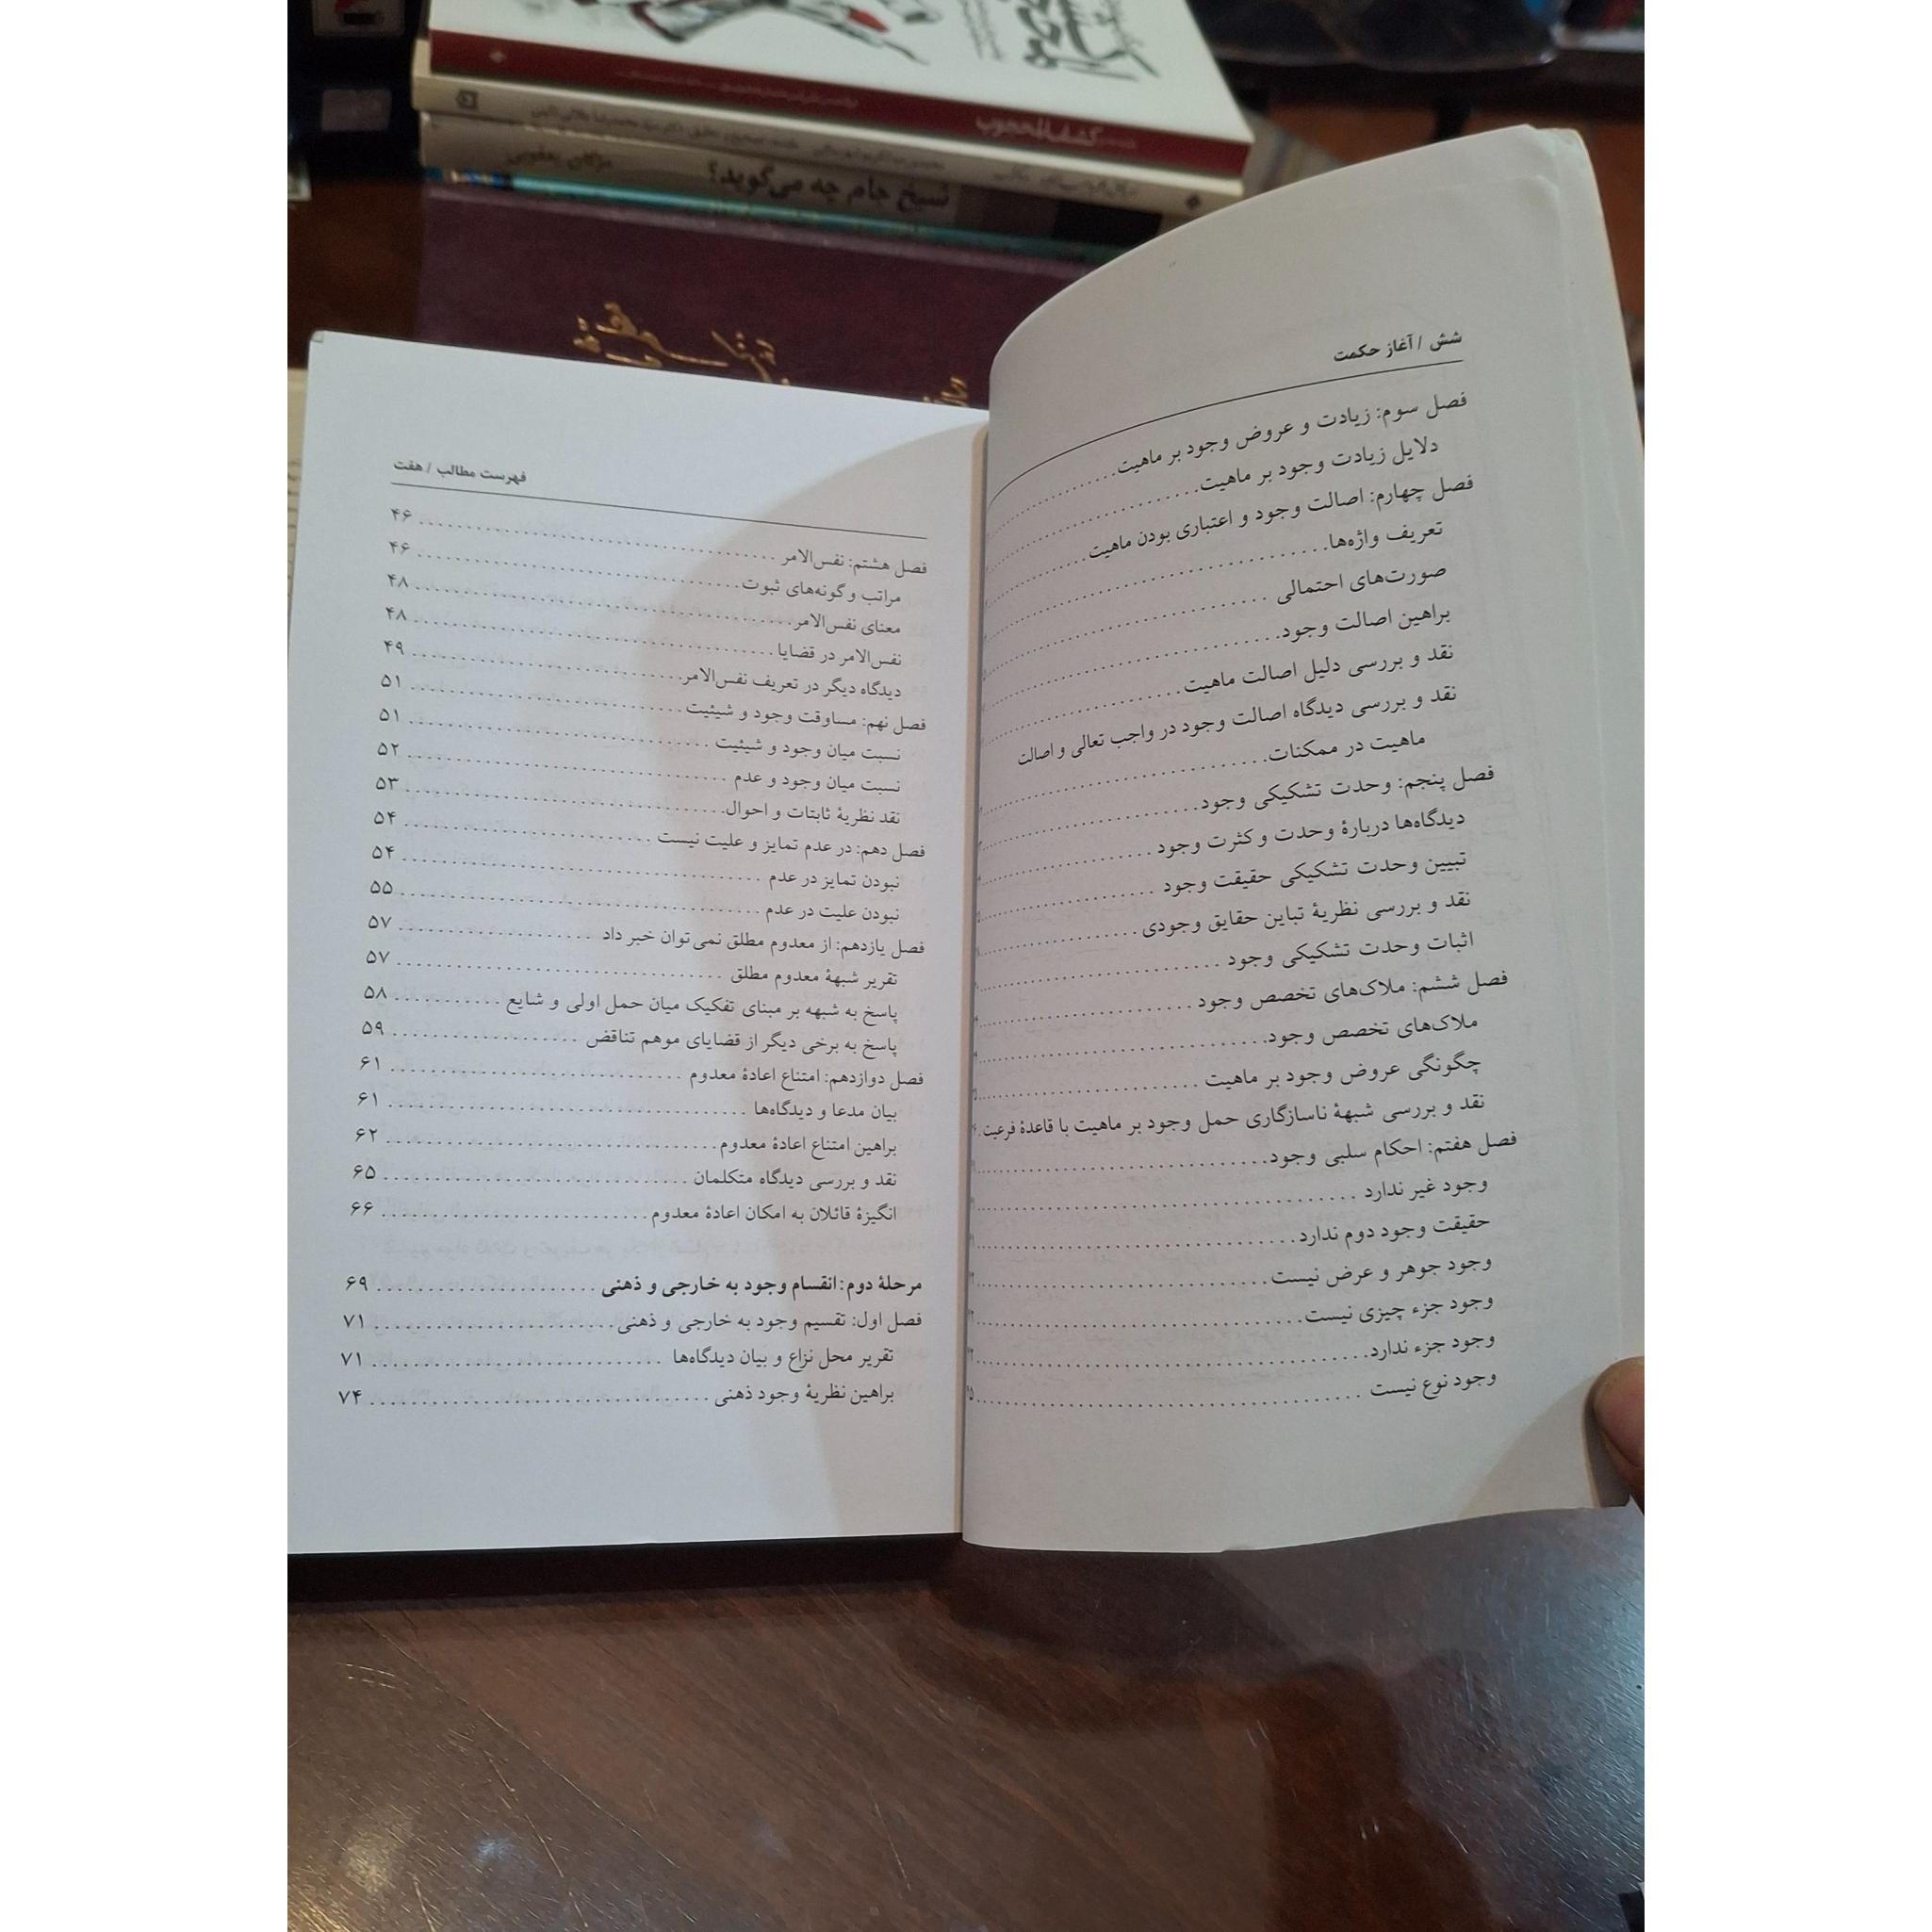 کشف‌المحجوب
شیخ جام چه می‌گوید؟
مژگان یعقوبی
شش / آغاز حکمت
فصل سوم: زیادت و عروض وجود بر ماهیت
دلایل زیادت وجود بر ماهیت
فصل چهارم: اصالت وجود و اعتباری بودن ماهیت
تعریف واژه‌ها
صورت‌های احتمالی
براهین اصالت وجود
نقد و بررسی دلیل اصالت ماهیت
نقد و بررسی دیدگاه اصالت وجود در واجب تعالی و اصالت
ماهیت در ممکنات
فصل پنجم: وحدت تشکیکی وجود
دیدگاه‌ها دربارهٔ وحدت و کثرت وجود
تبیین وحدت تشکیکی حقیقت وجود
نقد و بررسی نظریهٔ تباین حقایق وجودی
اثبات وحدت تشکیکی وجود
فصل ششم: ملاک‌های تخصص وجود
ملاک‌های تخصص وجود
چگونگی عروض وجود بر ماهیت
نقد و بررسی شبههٔ ناسازگاری حمل وجود بر ماهیت با قاعدهٔ فرعیت
فصل هفتم: احکام سلبی وجود
وجود غیر ندارد
حقیقت وجود دوم ندارد
وجود جوهر و عرض نیست
وجود جزء چیزی نیست
وجود جزء ندارد
وجود نوع نیست
فهرست مطالب / هفت
فصل هشتم: نفس‌الامر ۴۶
مراتب و گونه‌های ثبوت ۴۶
معنای نفس‌الامر ۴۸
نفس‌الامر در قضایا ۴۸
دیدگاه دیگر در تعریف نفس‌الامر ۴۹
فصل نهم: مساوقت وجود و شیئیت ۵۱
نسبت میان وجود و شیئیت ۵۱
نسبت میان وجود و عدم ۵۲
نقد نظریهٔ ثابتات و احوال ۵۳
فصل دهم: در عدم تمایز و علیت نیست ۵۴
نبودن تمایز در عدم ۵۴
نبودن علیت در عدم ۵۵
فصل یازدهم: از معدوم مطلق نمی‌توان خبر داد ۵۷
تقریر شبههٔ معدوم مطلق ۵۷
پاسخ به شبهه بر مبنای تفکیک میان حمل اولی و شایع ۵۸
پاسخ به برخی دیگر از قضایای موهم تناقض ۵۹
فصل دوازدهم: امتناع اعادهٔ معدوم ۶۱
بیان مدعا و دیدگاه‌ها ۶۱
براهین امتناع اعادهٔ معدوم ۶۲
نقد و بررسی دیدگاه متکلمان ۶۵
انگیزهٔ قائلان به امکان اعادهٔ معدوم ۶۶
مرحلهٔ دوم: انقسام وجود به خارجی و ذهنی ۶۹
فصل اول: تقسیم وجود به خارجی و ذهنی ۷۱
تقریر محل نزاع و بیان دیدگاه‌ها ۷۱
براهین نظریهٔ وجود ذهنی ۷۴